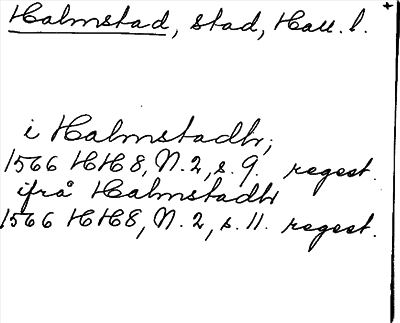 Halmstad, stad, Hall. l.
i Halmstadh,
1566 HH8, N. 2, s. 9. regest.
ifrå Halmstadh
1566 HH8, N. 2, s. 11. regest.